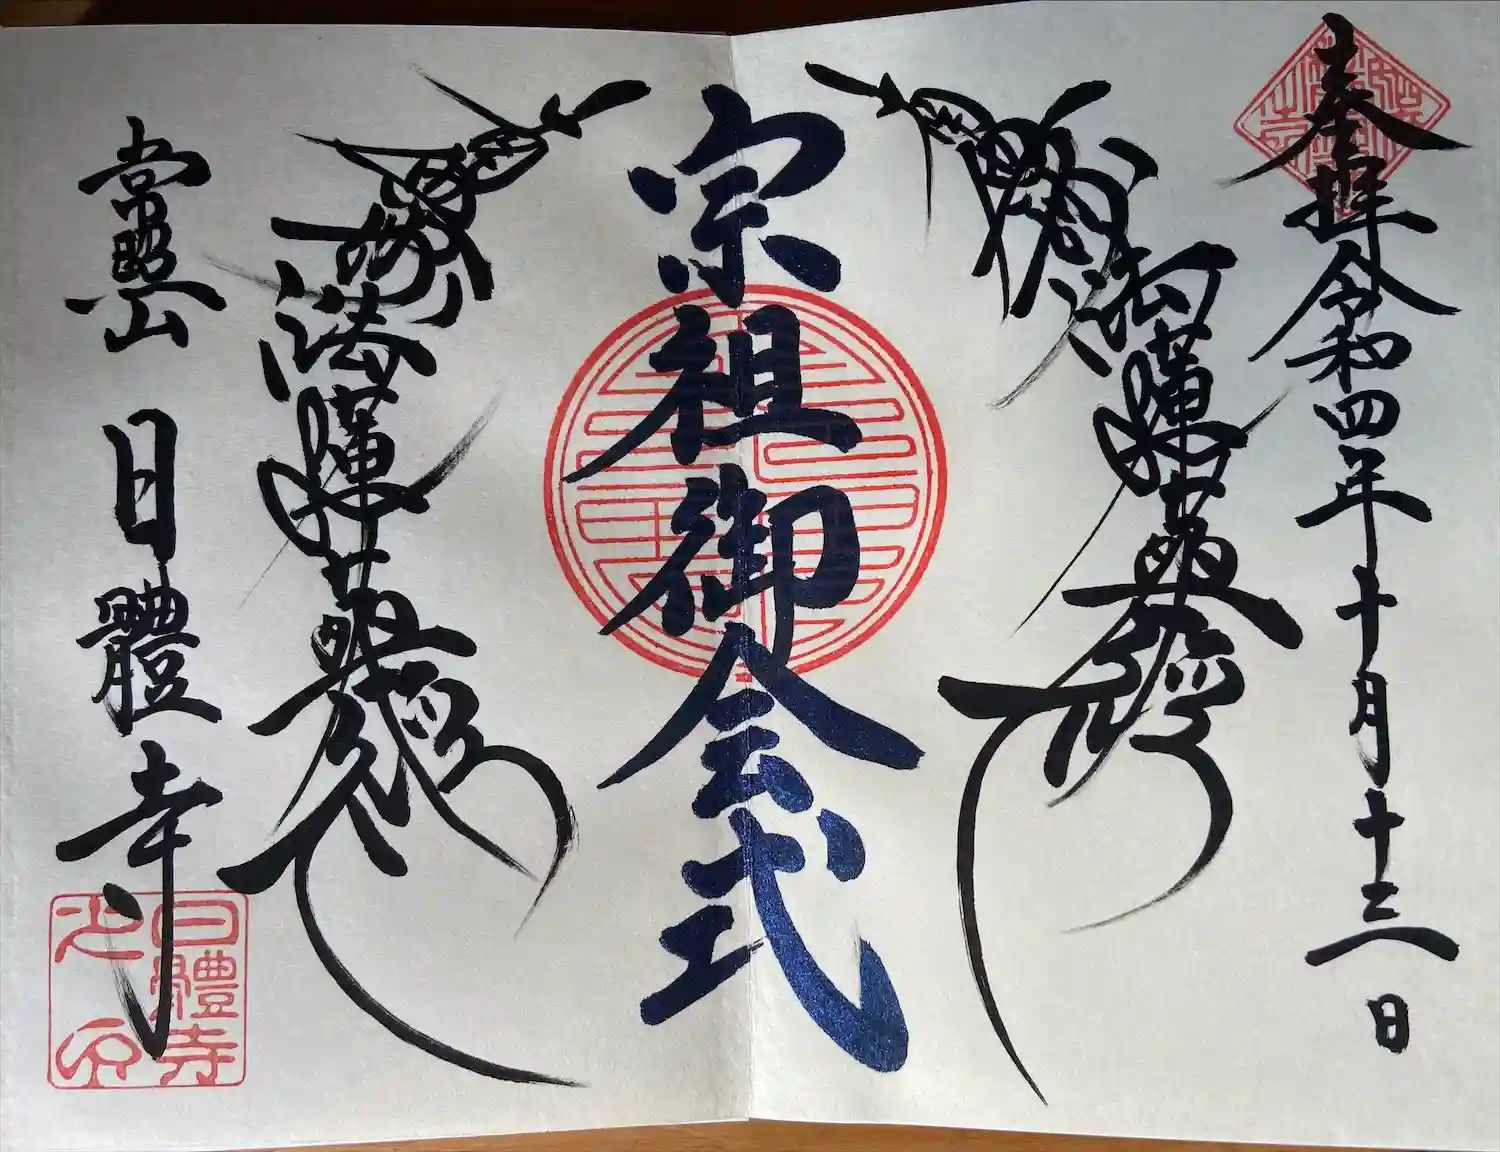 奉拝 令和四年十月十三日
南無妙法蓮華經
宗祖御会式
南無妙法蓮華經
常照山 日體寺
日體寺
之印